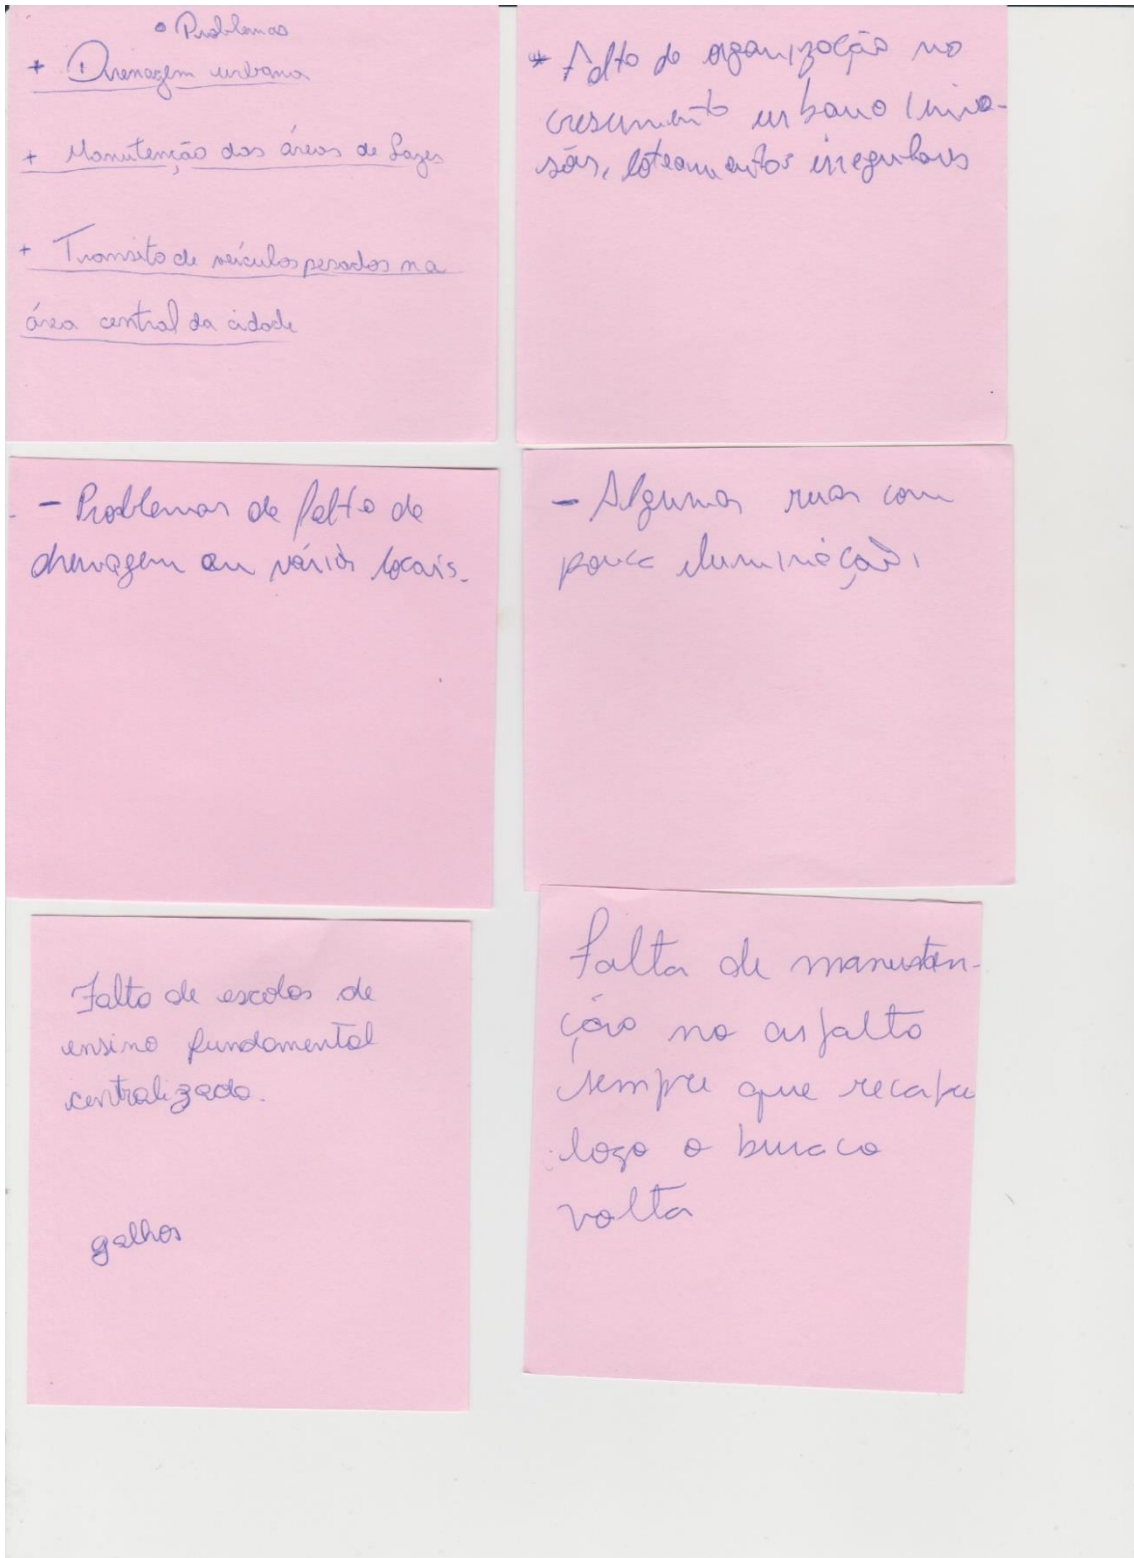 • Problemas
+ Drenagem urbana
+ Manutenção das áreas de lazer
+ Transito de veículos pesados na
área central da cidade
* Falta de organização no
crescimento urbano (inva-
sões, loteamentos irregulares
- Problemas de falta de
drenagem em vários locais.
- Algumas ruas com
pouca iluminação.
Falta de escolas de
ensino fundamental
centralizado.
galhos
Falta de manuten-
ção no asfalto
sempre que recape
logo o buraco
volta